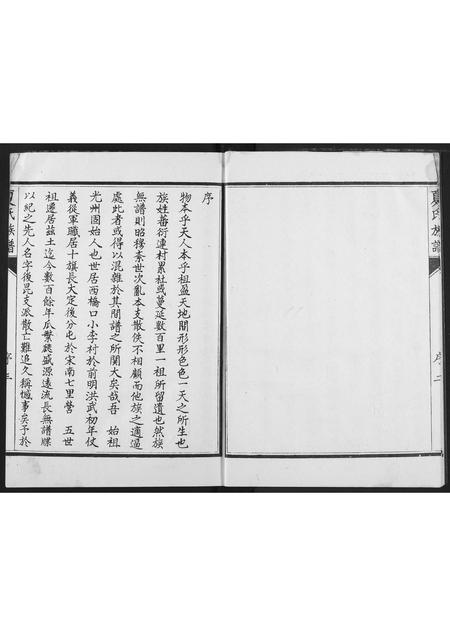 夏氏族譜
序二
序
物本乎天人本乎祖盈天地間形形色色一天之所生也
族姓蕃衍連村累社或蔓延數百里一祖所留遺也然族
無譜則昭穆紊世次亂本支散佚不相顧而他族之適逼
處此者或得以混雜於其間譜之所關大矣哉吾 始祖
光州固始人也世居西橋口小李村於前明洪武初年仗
義從軍職居十旗長大定後分屯於宋南七里營 五世
祖遷居茲土迄今數百餘年瓜繁瓞盛源遠流長無譜牒
以紀之先人名字後昆支派散亡難追久稱憾事矣予於
夏氏族譜
序三